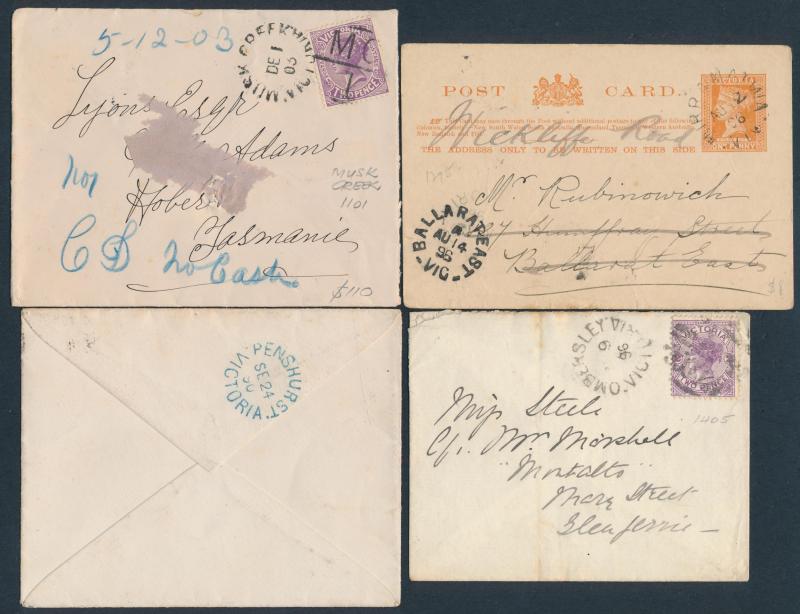 5-12-03
MUSK CREEK VICTORIA
DE 1
03
VICTORIA
TWO PENCE
M C
Lyons Esqr
Adams
Hobart
Tasmania
CD no Cash
MUSK
CREEK
1101
$110
POST CARD.
THE ADDRESS ONLY TO BE WRITTEN ON THIS SIDE
ONE PENNY
Wickliffe Road
Mr Rubinowich
Humffray Street
Ballarat East
BALLARAT EAST
AU 14
96
VIC
$8
PENSHURST
SE 24
90
VICTORIA
OMBERSLEY VICTORIA
96
VICTORIA
TWO PENCE
1405
Miss Steele
C/o Mr Marshall
"Montalto"
Mary Street
Glenferrie